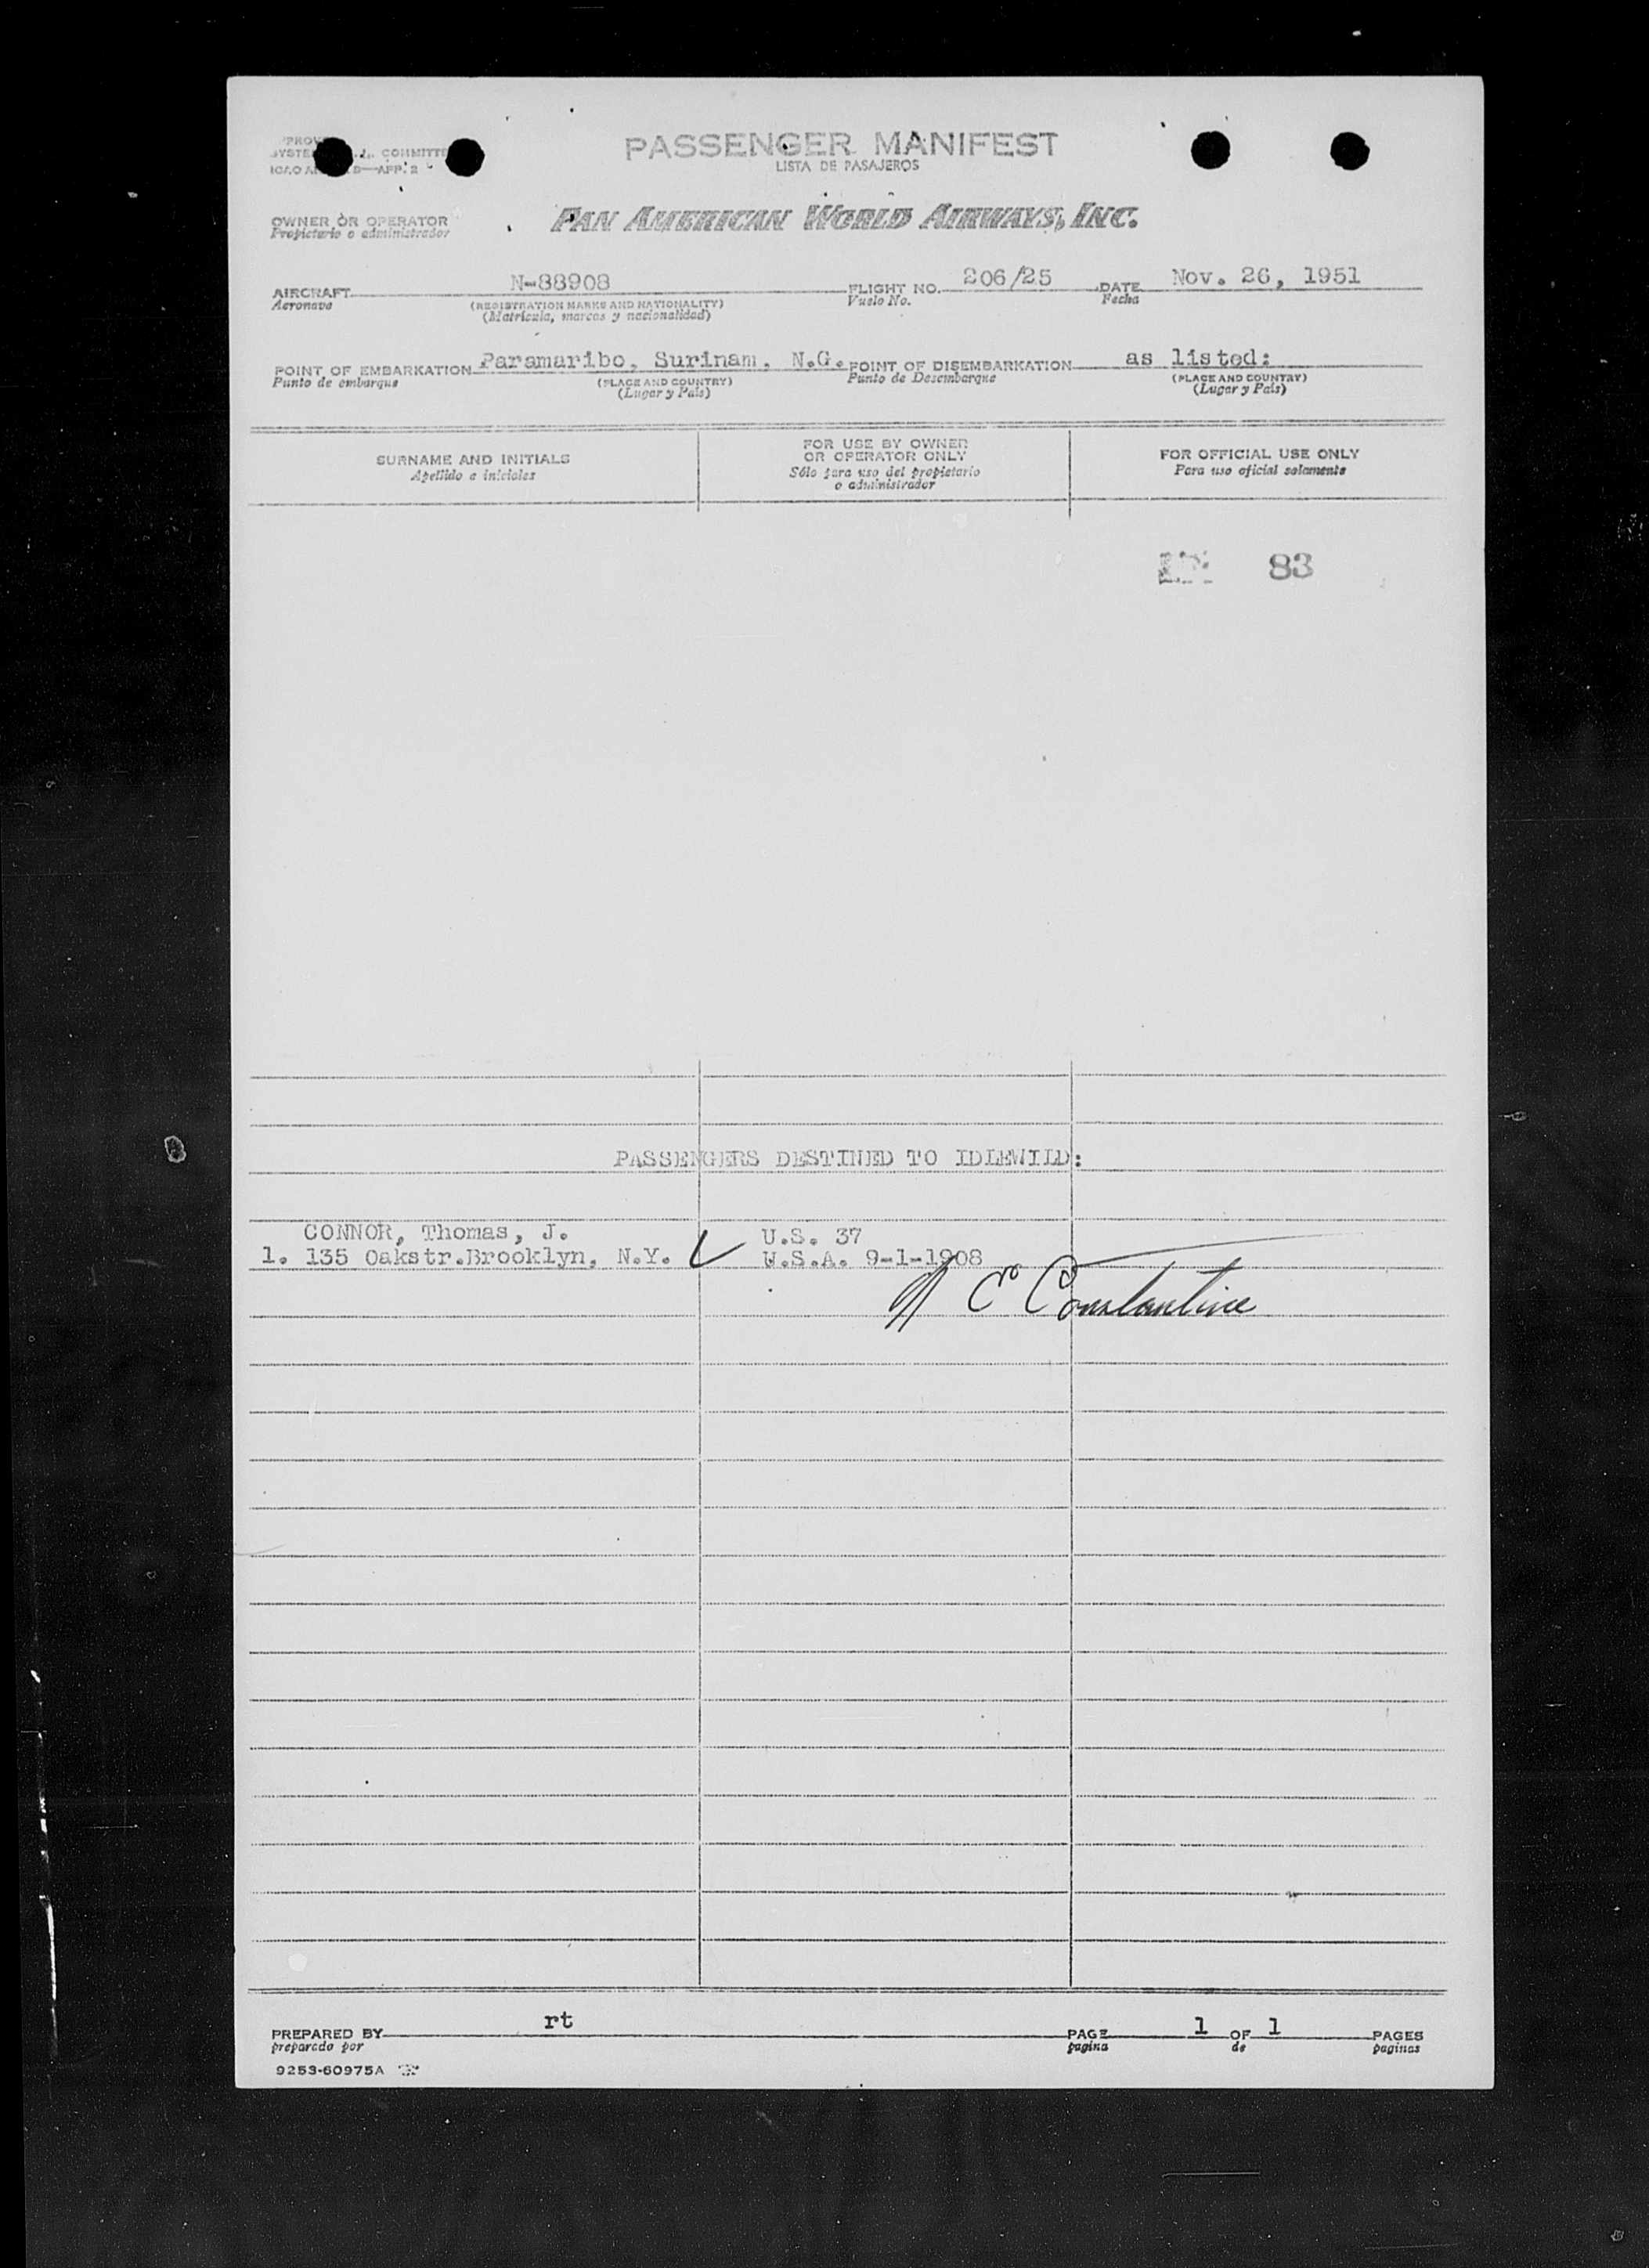 PASSENGER MANIFEST
LISTA DE PASAJEROS
OWNER OR OPERATOR
Propietario o administrador
PAN AMERICAN WORLD AIRWAYS, INC.
AIRCRAFT N-88908 FLIGHT NO. 206/25 DATE Nov. 26, 1951
Aeronave (REGISTRATION MARKS AND NATIONALITY) Vuelo No. Fecha
(Matrícula, marcas y nacionalidad)
POINT OF EMBARKATION Paramaribo, Surinam, N.G. POINT OF DISEMBARKATION as listed:
Punto de embarque (PLACE AND COUNTRY) Punto de Desembarque (PLACE AND COUNTRY)
(Lugar y País) (Lugar y País)
SURNAME AND INITIALS
Apellido e iniciales
FOR USE BY OWNER
OR OPERATOR ONLY
Sólo para uso del propietario
o administrador
FOR OFFICIAL USE ONLY
Para uso oficial solamente
83
PASSENGERS DESTINED TO IDLEWILD:
CONNOR, Thomas, J. U.S. 37
1. 135 Oakstr.Brooklyn, N.Y. U.S.A. 9-1-1908
C Constantine
PREPARED BY rt PAGE 1 OF 1 PAGES
preparado por pagina de paginas
9253-60975A